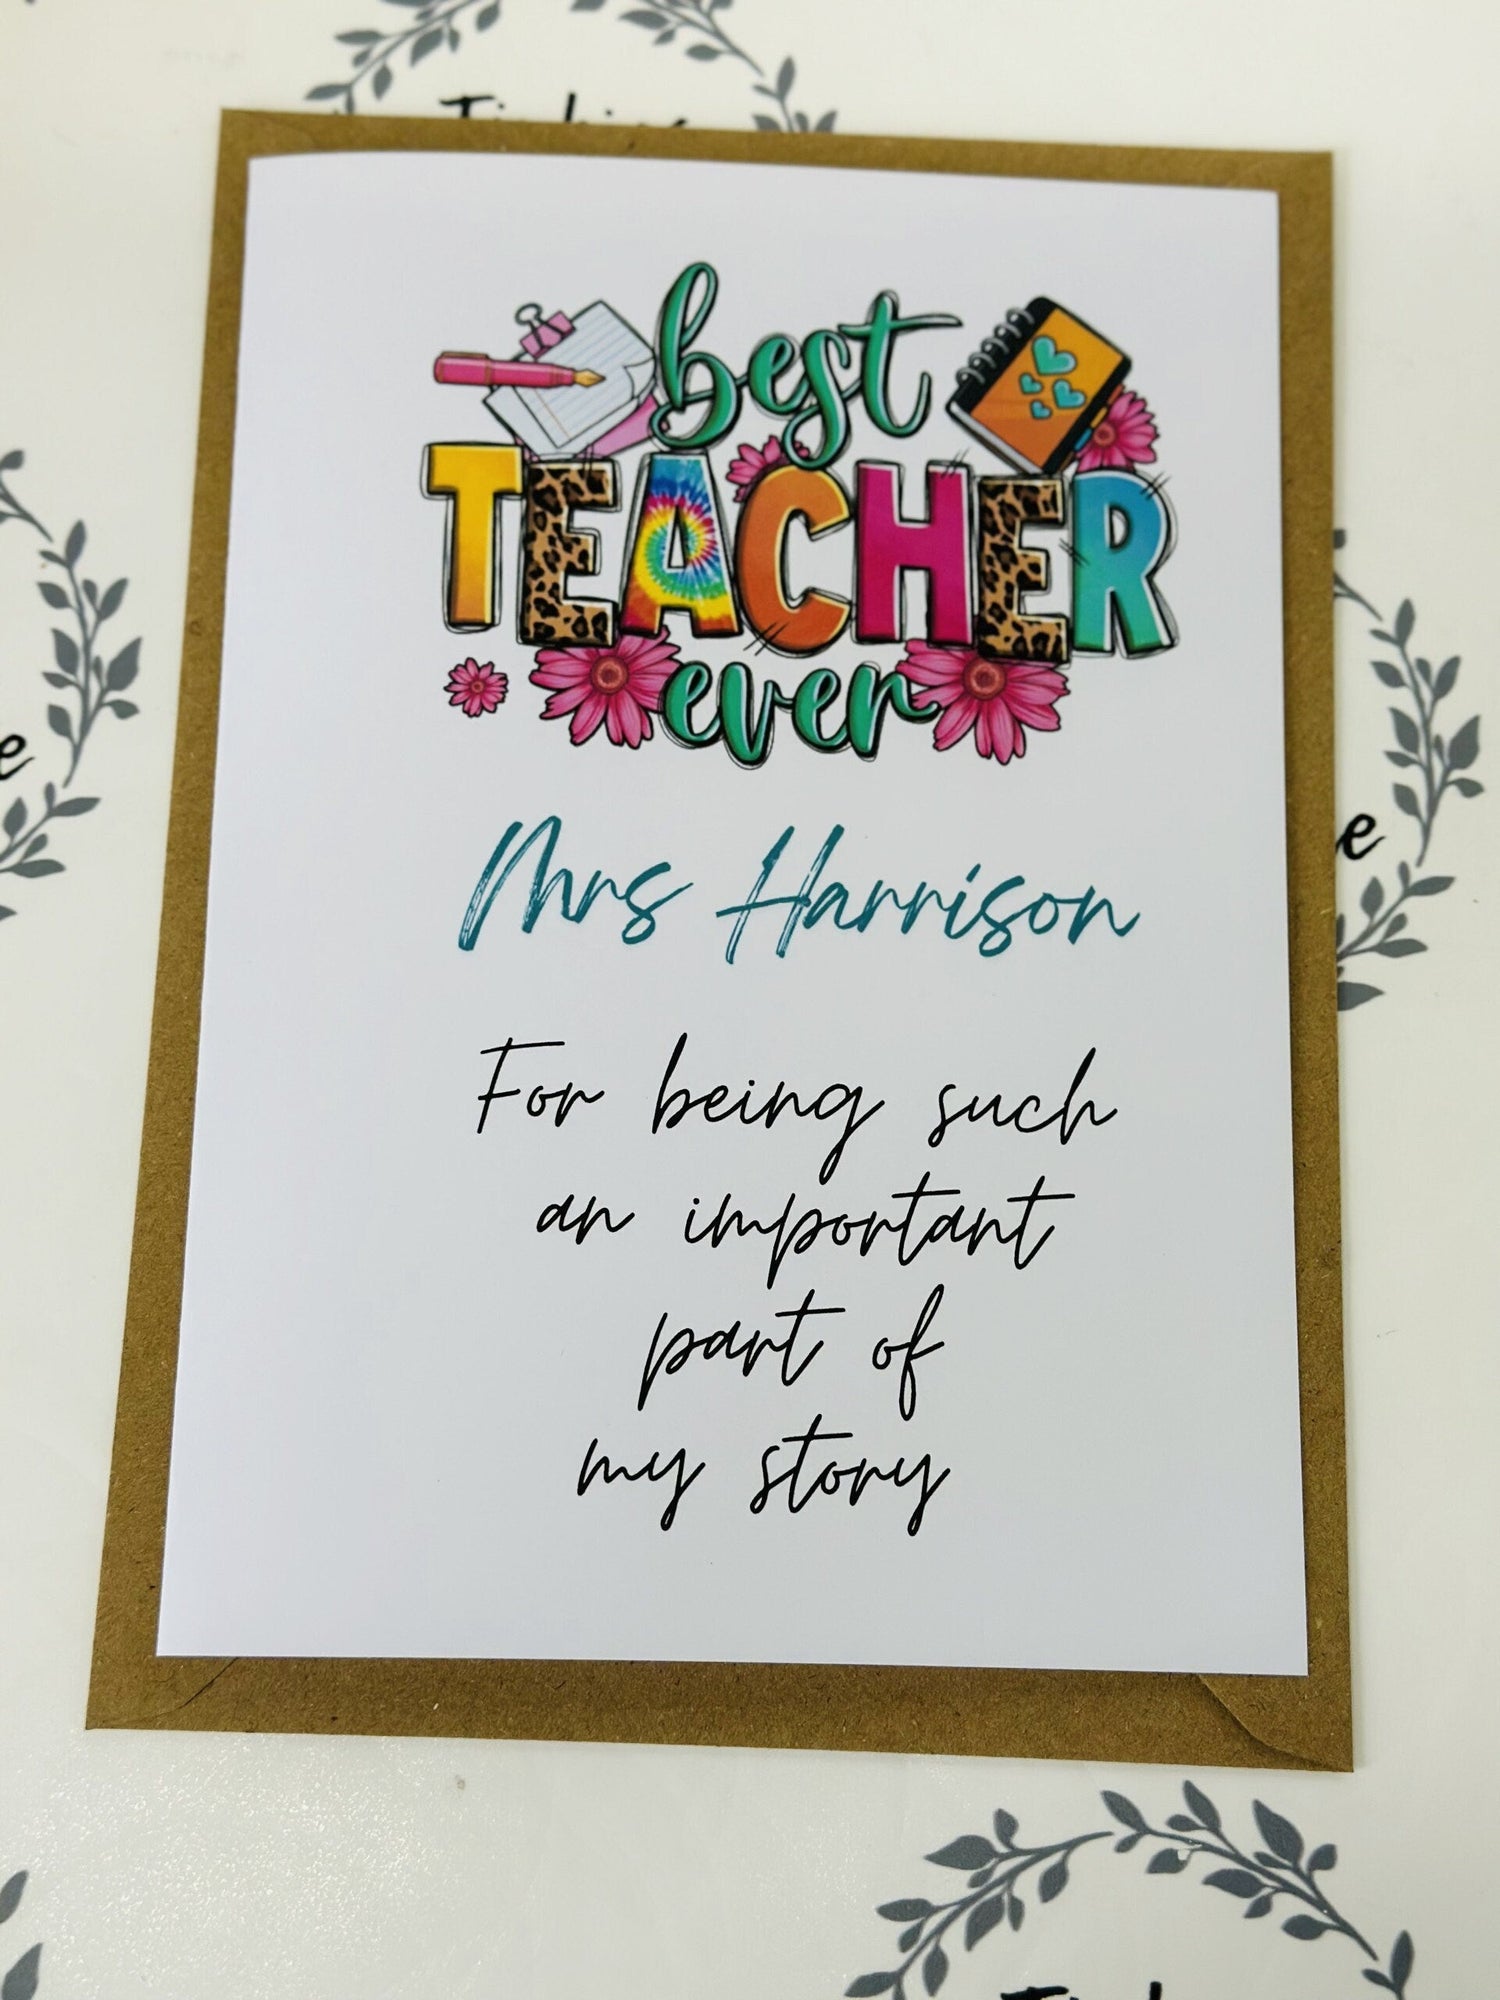 best
TEACHER
ever
Mrs Harrison
For being such
an important
part of
my story